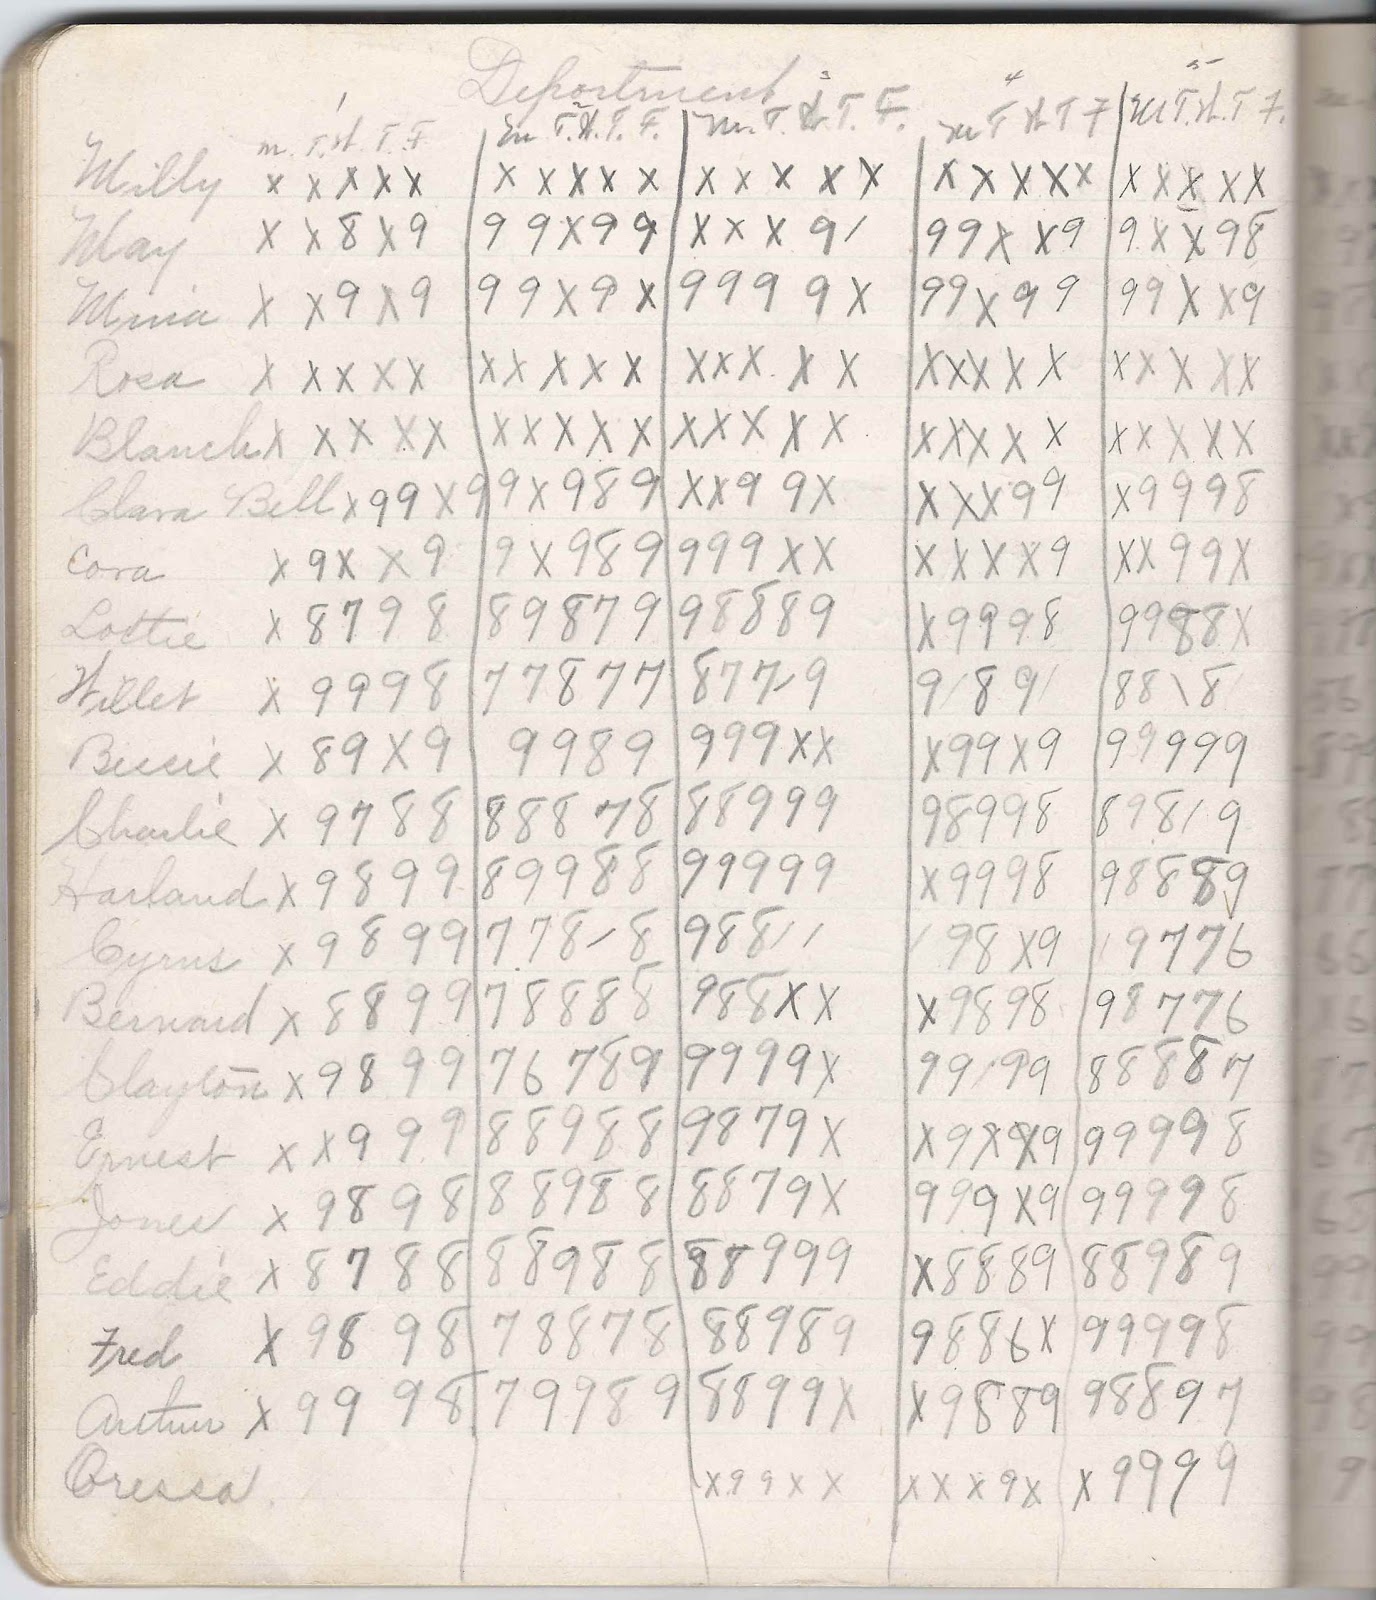 Deportment
1 2 3 4 5
M. T. W. T. F. M T. W. T. F. M. T. W T. F. M T W T F M T. W. T F.
Milly x x x x x x x x x x x x x x x x x x x x x x x x x
May x x 8 x 9 9 9 x 9 9 x x x 9 / 9 9 x x 9 9 x x 9 8
Minia x x 9 x 9 9 9 x 9 x 9 9 9 9 x 9 9 x 9 9 9 9 x x 9
Rosa x x x x x x x x x x x x x x x x x x x x x x x x x
Blanch x x x x x x x x x x x x x x x x x x x x x x x x x
Clara Bell x 9 9 x 9 9 x 9 8 9 x x 9 9 x x x x 9 9 x 9 9 9 8
Cora x 9 x x 9 9 x 9 8 9 9 9 9 x x x x x x 9 x x 9 9 x
Lottie x 8 7 9 8 8 9 8 7 9 9 8 8 8 9 x 9 9 9 8 9 9 8 8 x
Willet x 9 9 9 8 7 7 8 7 7 8 7 7 / 9 9 / 8 9 / 8 8 \ 8 /
Bessie x 8 9 x 9 9 9 8 9 9 9 9 x x x 9 9 x 9 9 9 9 9 9
Charlie x 9 7 8 8 8 8 8 7 8 8 8 9 9 9 9 8 9 9 8 8 9 8 / 9
Harland x 9 8 9 9 8 9 9 8 8 9 9 9 9 9 x 9 9 9 8 9 8 8 8 9
Cyrus x 9 8 9 9 7 7 8 / 8 9 8 8 / / / 9 8 x 9 / 9 7 7 6
Bernard x 8 8 9 9 7 8 8 8 8 9 8 8 x x x 9 8 9 8 9 8 7 7 6
Clayton x 9 8 9 9 7 6 7 8 9 9 9 9 9 x 9 9 / 9 9 8 8 8 8 7
Ernest x x 9 9 9 8 8 9 8 8 9 8 7 9 x x 9 x x 9 9 9 9 9 8
Jones x 9 8 9 8 8 8 9 8 8 8 8 7 9 x 9 9 9 x 9 9 9 9 9 8
Eddie x 8 7 8 8 8 8 9 8 8 8 8 9 9 9 x 8 8 8 9 8 8 9 8 9
Fred x 9 8 9 8 7 8 8 7 8 8 8 9 8 9 9 8 8 6 x 9 9 9 9 8
Arthur x 9 9 9 8 7 9 9 8 9 8 8 9 9 x x 9 8 8 9 9 8 8 9 7
Oressa. x 9 9 x x x x x 9 x x 9 9 9 9